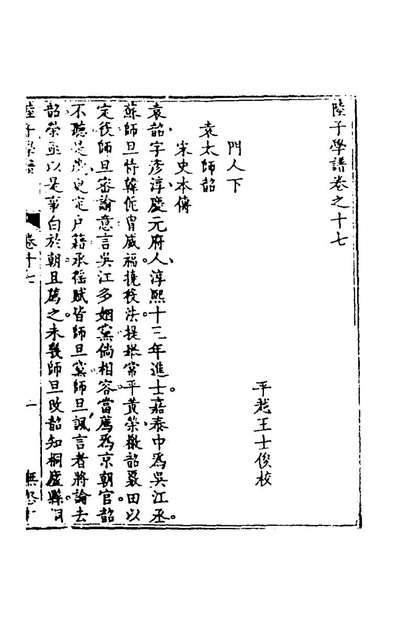 陸子學譜卷之十七
平越王士俊校
門人下
袁太師韶
宋史本傳
袁韶字彥淳慶元府人淳熙十三年進士嘉泰中為吳江丞
蘇師旦恃韓侂胄威福撓役法提舉常平黃榮檄韶覈田以
定役師旦密諭意言吳江多姻黨倘相容當薦為京朝官韶
不聽是歲更定戶籍承徭賦皆師旦黨師旦諷言者將論去
韶榮亟以是事白於朝且薦之未幾師旦敗韶知桐廬縣
陸子學譜
卷十七
一
無怒